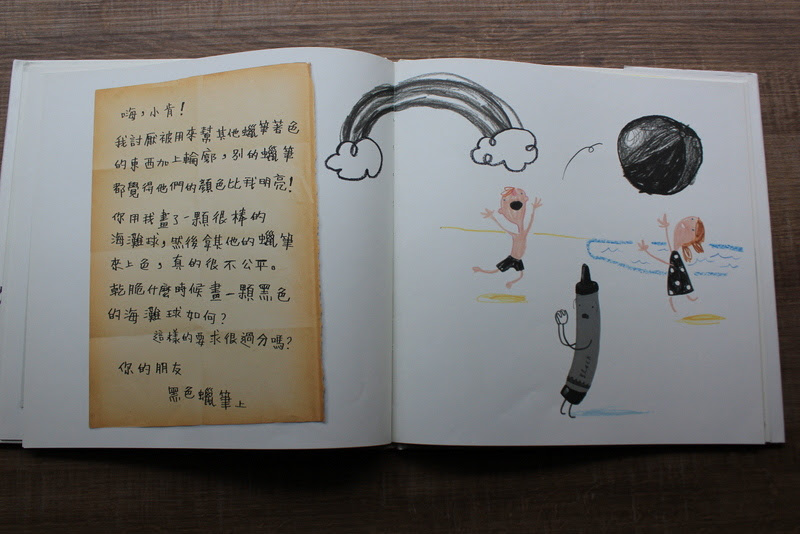 嗨，小青！
我討厭被用來幫其他蠟筆著色
的東西加上輪廓，別的蠟筆
都覺得他們的顏色比我明亮！
你用我畫了一顆很棒的
海灘球，然後拿其他的蠟筆
來上色，真的很不公平。
乾脆什麼時候畫一顆黑色
的海灘球如何？
這樣的要求很過分嗎？
你的朋友
黑色蠟筆上